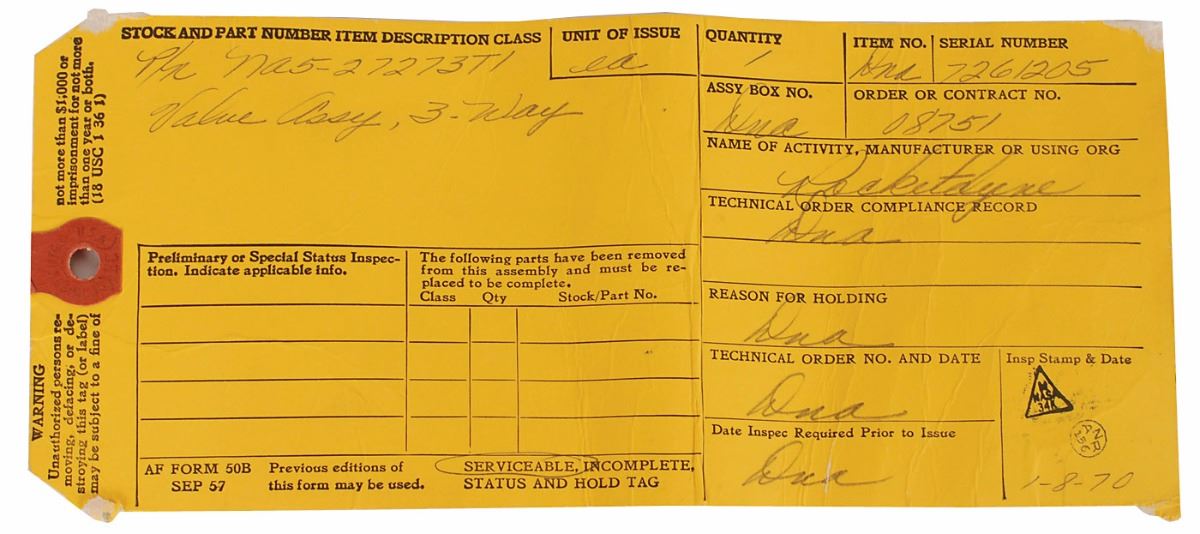 STOCK AND PART NUMBER ITEM DESCRIPTION CLASS
P/n NA5-27273T1
Valve Assy, 3-Way
UNIT OF ISSUE
ea
QUANTITY
1
ITEM NO.
Dna
SERIAL NUMBER
7261205
ASSY BOX NO.
Dna
ORDER OR CONTRACT NO.
08751
NAME OF ACTIVITY, MANUFACTURER OR USING ORG
Rocketdyne
TECHNICAL ORDER COMPLIANCE RECORD
Dna
REASON FOR HOLDING
Dna
TECHNICAL ORDER NO. AND DATE
Dna
Date Inspec Required Prior to Issue
Dna
Insp Stamp & Date
34K
1-8-70
Preliminary or Special Status Inspec-
tion. Indicate applicable info.
The following parts have been removed
from this assembly and must be re-
placed to be complete.
Class Qty Stock/Part No.
AF FORM 50B
SEP 57
Previous editions of
this form may be used.
SERVICEABLE, INCOMPLETE,
STATUS AND HOLD TAG
WARNING
Unauthorized persons re-
moving, defacing, or de-
stroying this tag (or label)
may be subject to a fine of
not more than $1,000 or
imprisonment for not more
than one year or both.
(18 USC 1 36 1)